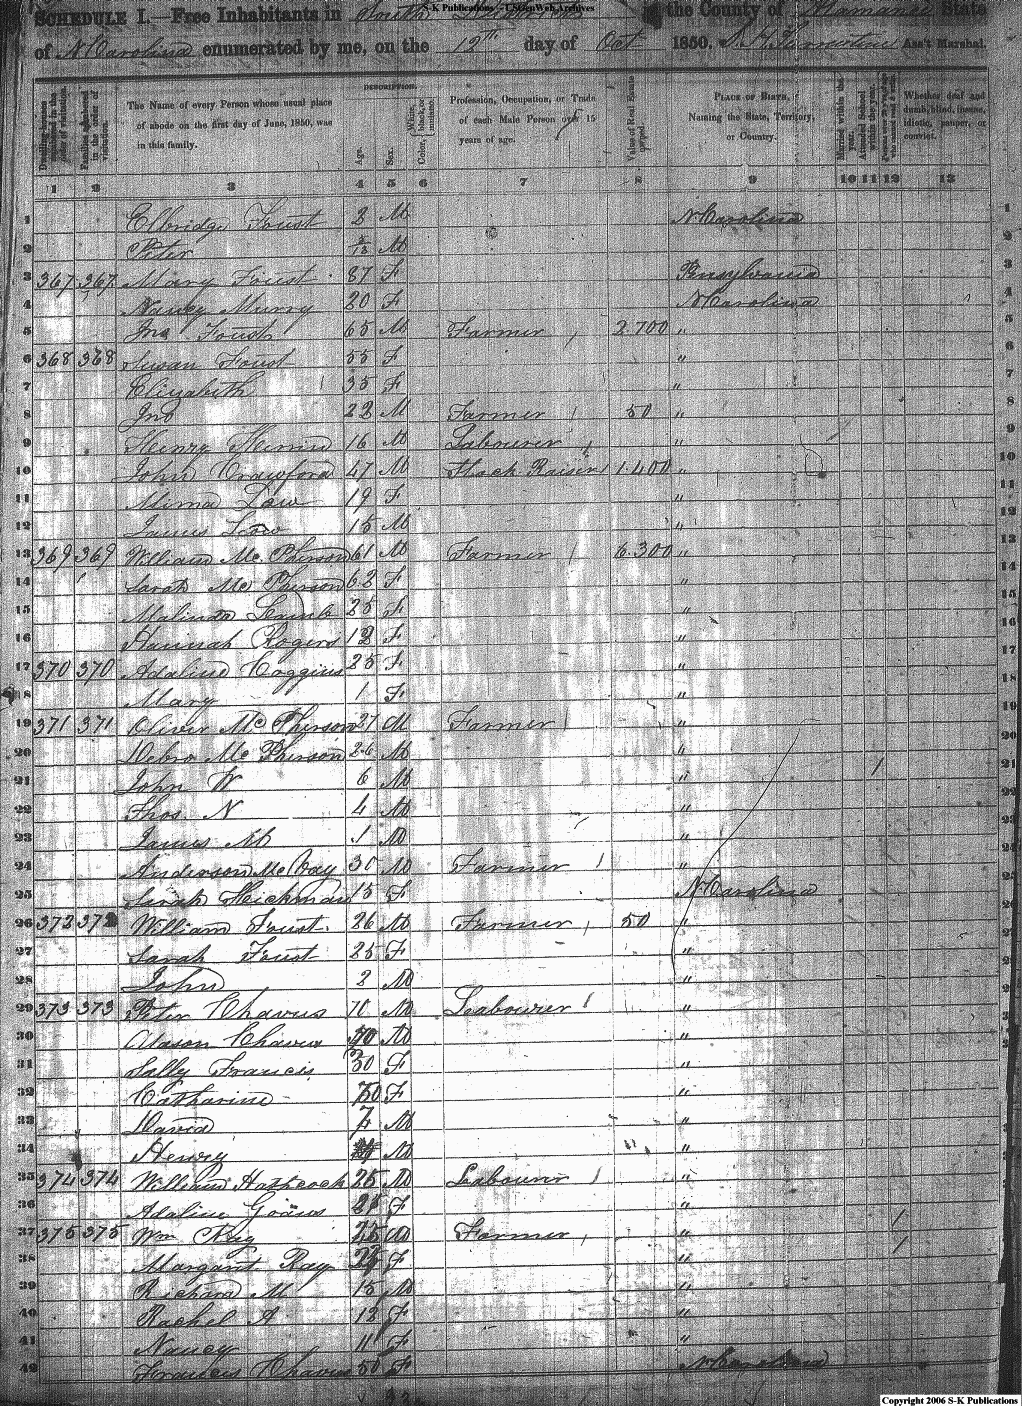 S-K Publications - USGenWeb Archives
SCHEDULE I.—Free Inhabitants in South in the County of Alamance State
of N Carolina enumerated by me, on the 12th day of Oct 1850. Ass't Marshal.
DESCRIPTION.
Dwelling-houses numbered in the order of visitation. Families numbered in the order of visitation. The Name of every Person whose usual place of abode on the first day of June, 1850, was in this family. Age. Sex. Color, White, black, or mulatto. Profession, Occupation, or Trade of each Male Person over 15 years of age. Value of Real Estate owned. PLACE OF BIRTH, Naming the State, Territory, or Country. Married within the year. Attended School within the year. Whether deaf and dumb, blind, insane, idiotic, pauper, or convict.
1 2 3 4 5 6 7 8 9 10 11 12 13
1 Elbridge Foust 2 M N Carolina 1
2 Peter M 2
3 367 367 Mary Foust 87 F Pensylvania 3
4 Nancy Murry 20 F N Carolina 4
5 Jno Foust 65 M Farmer 2.700 " 5
6 368 368 Susan Foust 55 F " 6
7 Elizabeth 35 F " 7
8 Jno 22 M Farmer 50 " 8
9 Henry 16 M Labourer " 9
10 John Crawford 47 M Stock Raiser 1.400 " 10
11 Mima Low 19 F " 11
12 James Low 15 M " 12
13 369 369 William Mc Pherson 61 M Farmer 6.300 " 13
14 Sarah Mc Pherson 62 F " 14
15 Malinda Lamb 25 F " 15
16 Hannah Rogers 12 F " 16
17 370 370 Adaline Coggins 25 F " 17
18 Mary 1 F " 18
19 371 371 Oliver Mc Pherson 27 M Farmer " 19
20 Debro Mc Pherson 26 M " 20
21 John W 6 M " / 21
22 Thos. N 4 M " 22
23 James M 1 M " 23
24 Anderson McCray 30 M Farmer " 24
25 Sarah Hickman 15 F N Carolina 25
26 372 372 William Foust 26 M Farmer 50 "
27 Sarah Foust 25 F "
28 John 2 M "
29 373 373 Peter Chavus 70 M Labourer "
30 Chavus M "
31 Sally Francis 30 F "
32 Catharine F "
33 David 7 M "
34 Henry M "
35 374 374 William Hathcock 25 M Labourer "
36 Adaline F " /
37 375 375 Wm 25 M Farmer " /
38 Margaret Ray F "
39 Richard M 15 M "
40 Rachel A 12 F "
41 Nancy 11 F "
42 Francis Chavus 50 F N Carolina
Copyright 2006 S-K Publications